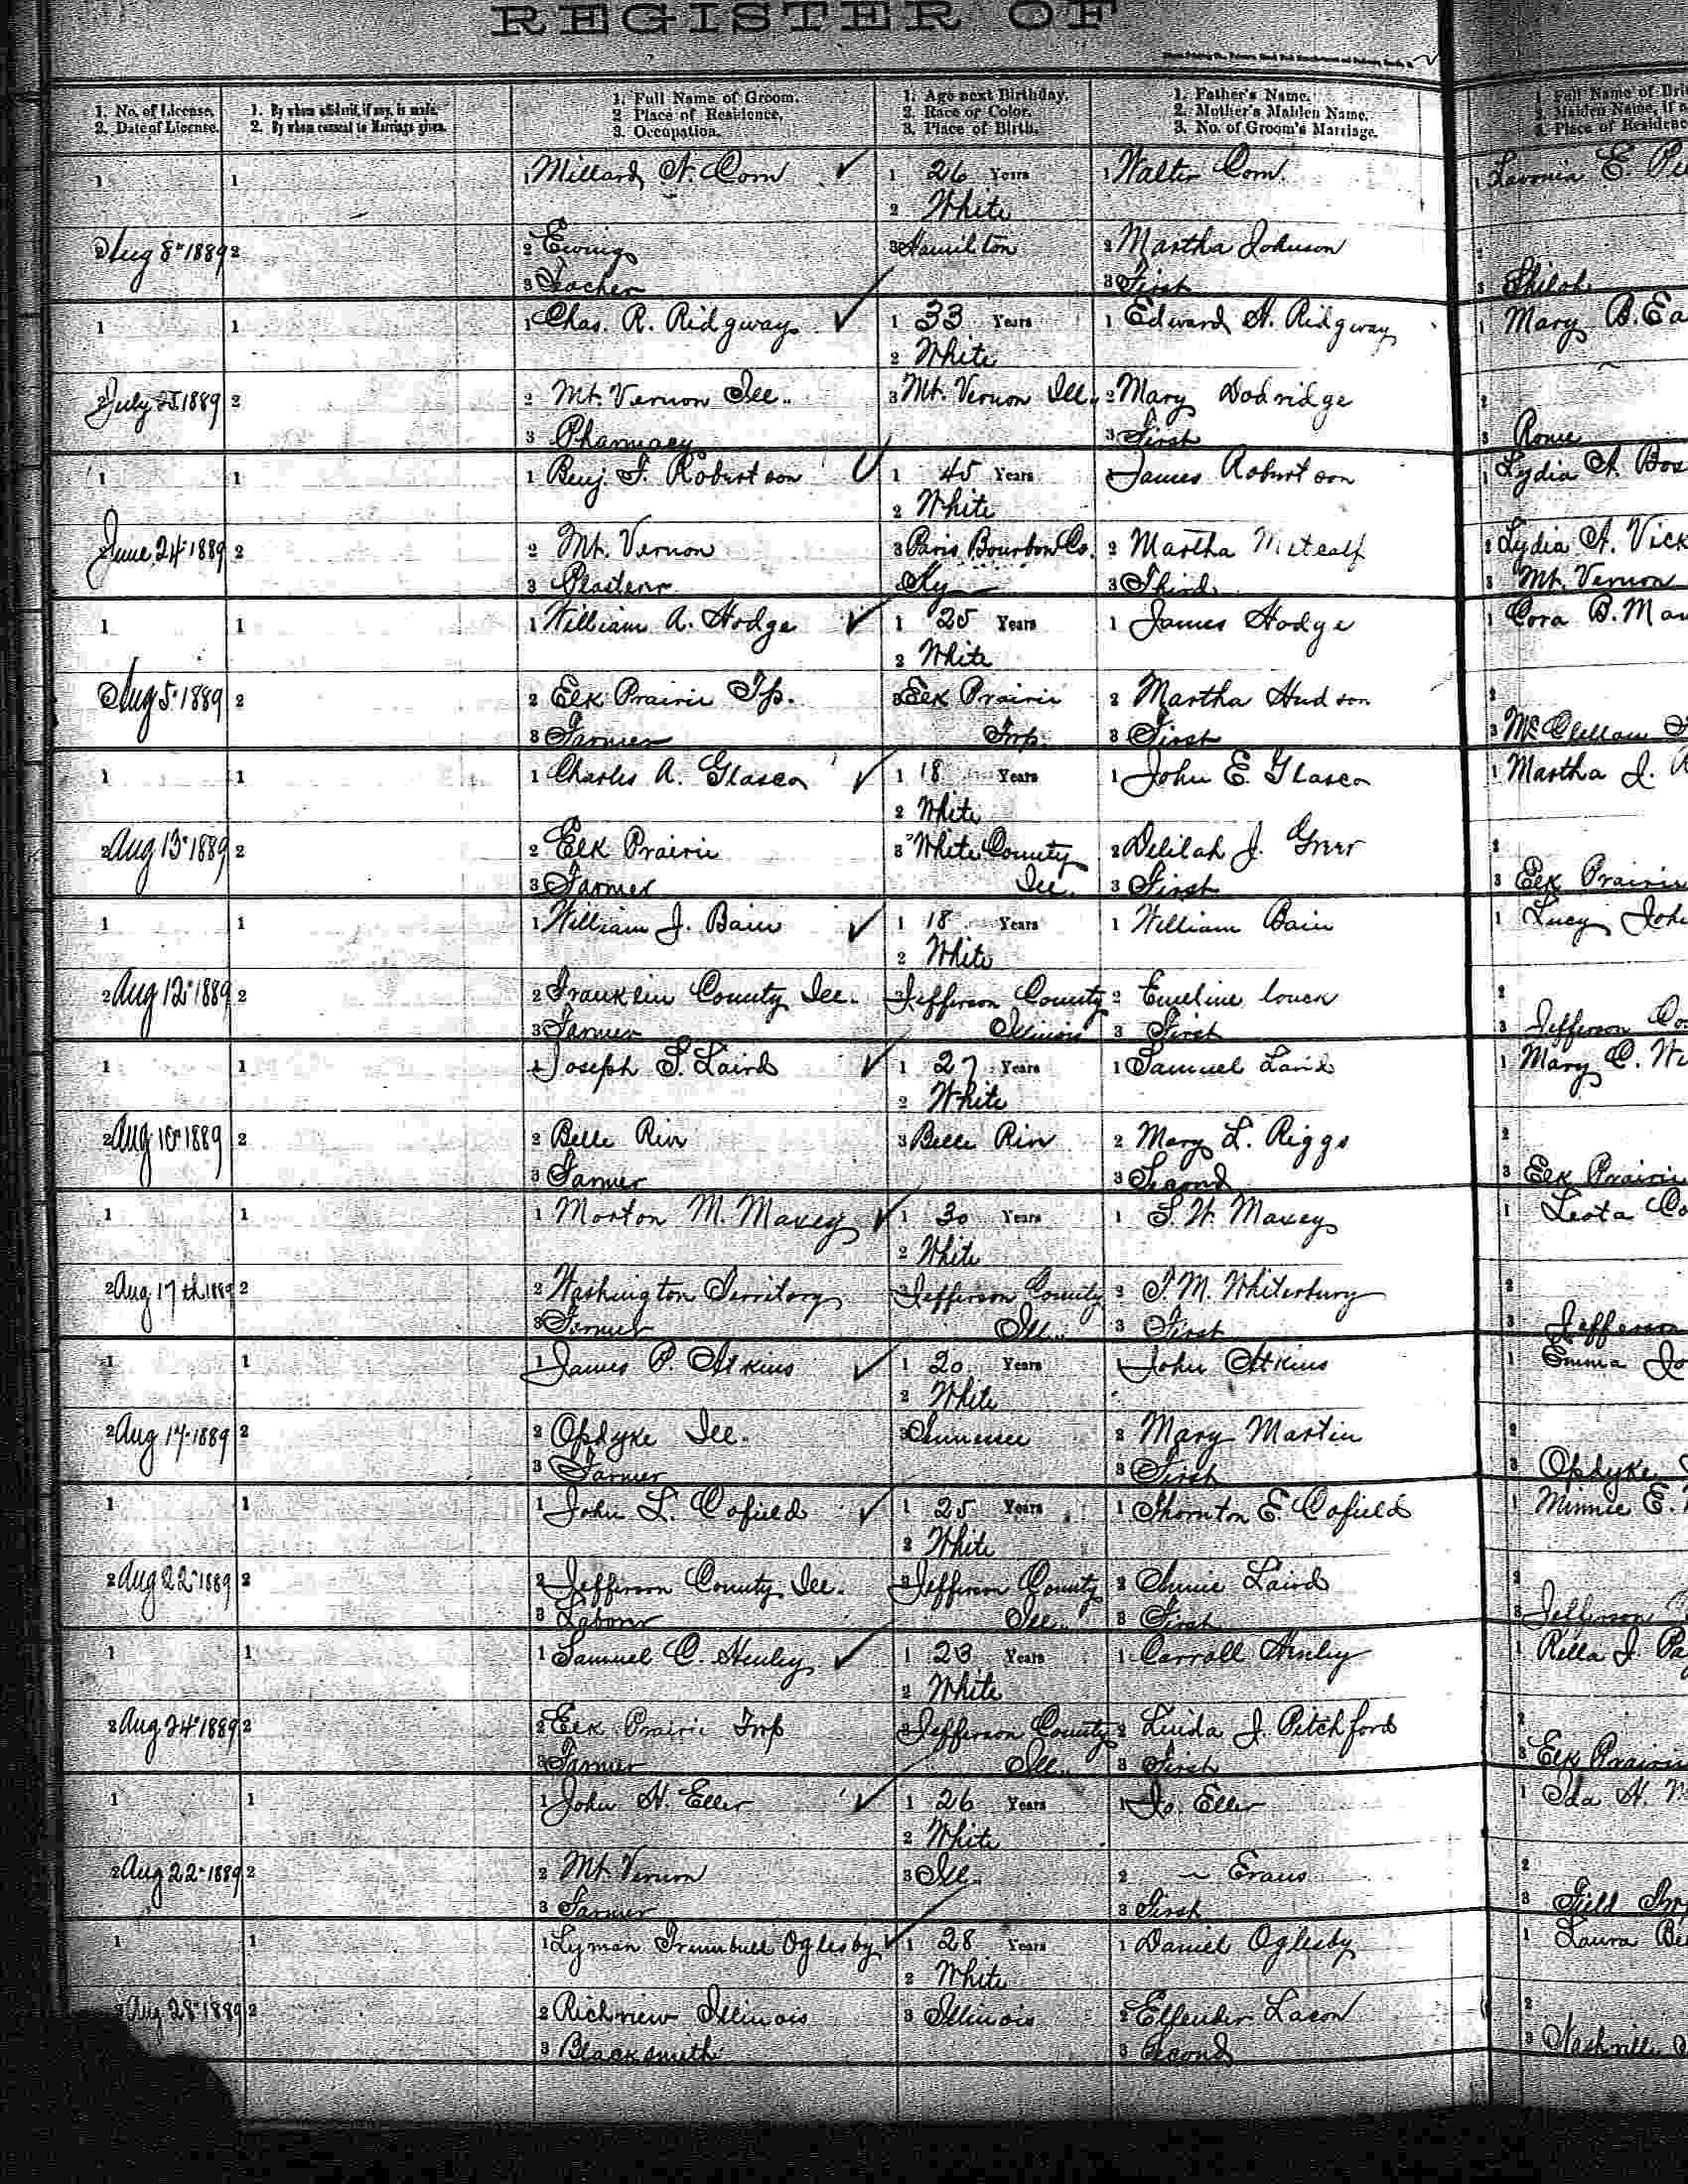 REGISTER OF
1. No. of License.
2. Date of License.
1. By whom affidavit, if any, is made.
2. By whom consent to Marriage given.
1. Full Name of Groom.
2 Place of Residence.
3. Occupation.
1. Age next Birthday.
2. Race or Color.
3. Place of Birth.
1. Father's Name.
2. Mother's Maiden Name.
3. No. of Groom's Marriage.
1. Full Name of Bri
2. Maiden Name, if a
3. Place of Residenc
1 1 1 Millard A. Corn 1 26 Years 1 Walter Corn 1 Lavonia E.
2 White
2 Aug 8" 1889 2 2 Ewing 3 Hamilton 2 Martha Johnson 2
3 Teacher 3 First 3 Shiloh
1 1 1 Chas. R. Ridgway 1 33 Years 1 Edward A. Ridgway 1 Mary B. Ea
2 White
2 July 25 1889 2 2 Mt. Vernon Ill. 3 Mt. Vernon Ill. 2 Mary Dodridge 2
3 Pharmacy 3 First 3 Rome
1 1 1 Benj. F. Robertson 1 45 Years 1 James Robertson 1 Lydia A. Bos
2 White
June 24" 1889 2 2 Mt. Vernon 3 Paris Bourbon Co. 2 Martha Metcalf 2 Lydia A. Vick
3 Plasterer Ky 3 Third 3 Mt. Vernon
1 1 1 William A. Hodge 1 25 Years 1 James Hodge 1 Cora B. Man
2 White
2 Aug 5" 1889 2 2 Elk Prairie Tp. 3 Elk Prairie 2 Martha Hudson 2
3 Farmer Twp. 3 First 3 McClellan
1 1 1 Charles A. Glasco 1 18 Years 1 John E. Glasco 1 Martha J.
2 White
2 Aug 13" 1889 2 2 Elk Prairie 3 White County 2 Delilah J. Greer 2
3 Farmer Ill. 3 First 3 Elk Prairie
1 1 1 William J. Bain 1 18 Years 1 William Bain 1 Lucy Joh
2 White
2 Aug 12" 1889 2 2 Franklin County Ill. 3 Jefferson County 2 Emeline 2
3 Farmer Illinois 3 First 3 Jefferson Co
1 1 1 Joseph S. Laird 1 27 Years 1 Samuel Laird 1 Mary C.
2 White
2 Aug 10" 1889 2 2 Belle Riv 3 Belle Riv 2 Mary L. Riggs 2
3 Farmer 3 Second 3 Elk Prairie
1 1 1 Morton M. Maxey 1 30 Years 1 S. W. Maxey 1 Leota Co
2 White
2 Aug 17th 1889 2 2 Washington Territory 3 Jefferson County 2 S. M. Whitenbury 2
3 Farmer Ill. 3 First 3 Jefferson
1 1 1 James P. Atkins 1 20 Years 1 John Atkins 1 Emma Jo
2 White
2 Aug 17" 1889 2 2 Opdyke Ill. 3 Tennessee 2 Mary Martin 2
3 Farmer 3 First 3 Opdyke
1 1 1 John L. Cofield 1 25 Years 1 Thornton E. Cofield 1 Minnie E.
2 White
2 Aug 22" 1889 2 2 Jefferson County Ill. 3 Jefferson County 2 Annie Laird 2
3 Laborer Ill. 3 First 3 Jefferson
1 1 1 Samuel C. Henley 1 23 Years 1 Carroll Henley 1 Rella J. Pa
2 White
2 Aug 24" 1889 2 2 Elk Prairie Twp 3 Jefferson County 2 Linda J. Pitchford 2
3 Farmer Ill. 3 First 3 Elk Prairie
1 1 1 John H. Eller 1 26 Years 1 Jo. Eller 1 Ida H.
2 White
2 Aug 22" 1889 2 2 Mt. Vernon 3 Ill. 2 — Evans 2
3 Farmer 3 First 3 Field
1 1 1 Lyman Trumbull Oglesby 1 28 Years 1 Daniel Oglesby 1 Laura Be
2 White
2 Aug 28" 1889 2 2 Richview Illinois 3 Illinois 2 Lacon 2
3 Blacksmith 3 Second 3 Nashville